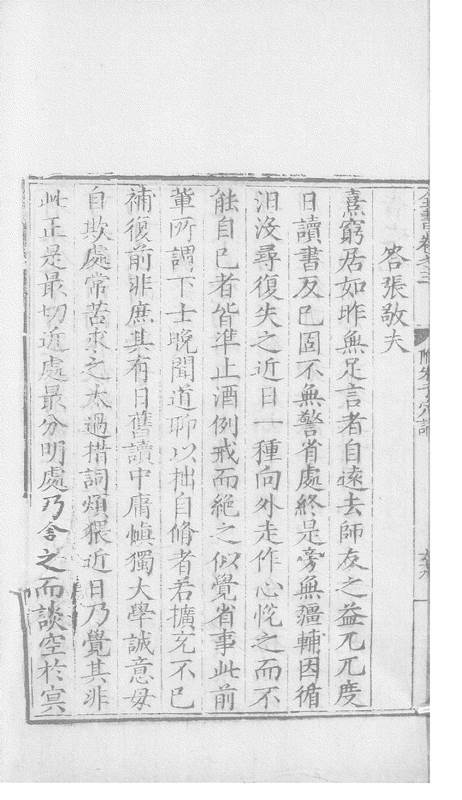 答張敬夫
熹窮居如昨無足言者自遠去師友之益兀兀度
日讀書反已固不無警省處終是旁無彊輔因循
汨没尋復失之近日一種向外走作心恱之而不
能自已者皆準止酒例戒而絶之似覺省事此前
軰所謂下士晚聞道聊以拙自脩者若擴充不已
補復前非庶其有日舊讀中庸愼獨大學誠意毋
自欺處常苦求之太過措詞煩猥近日乃覺其非
此正是最切近處最分明處乃舍之而談空於㝠